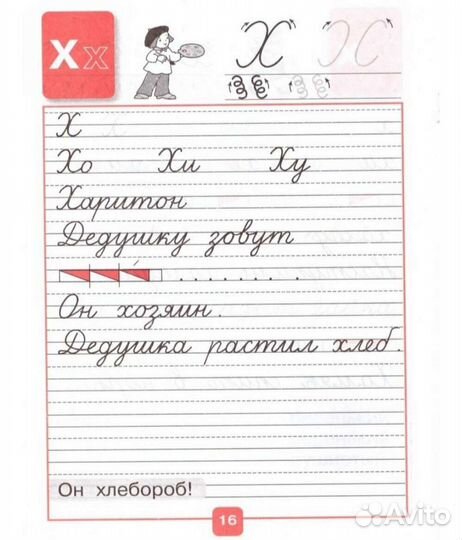 Х х
Х
Х
Хо Хи Ху
Харитон
Дедушку зовут
. . . . . . . .
Он хозяин.
Дедушка растил хлеб.
Он хлебороб!
16
Avito